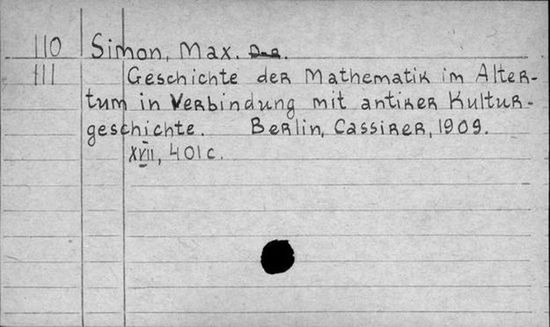 110 Simon, Max.
111 Geschichte der Mathematik im Alter-
tum in Verbindung mit antiker Kultur-
geschichte. Berlin, Cassirer, 1909.
XVII, 401 c.